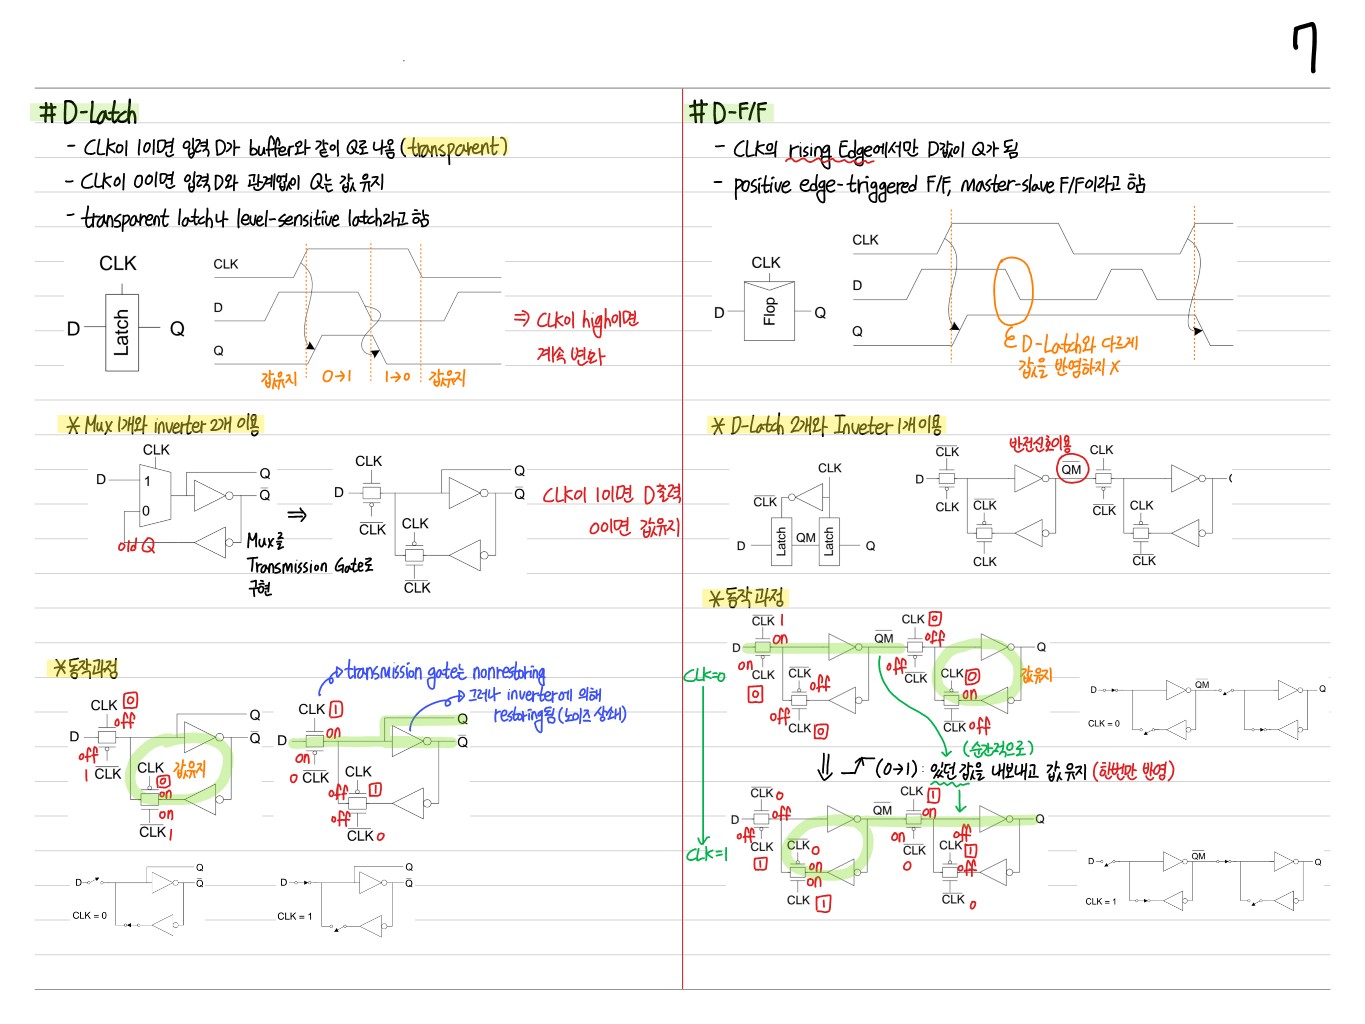 7
# D-Latch
- CLK이 1이면 입력 D가 buffer와 같이 Q로 나옴 (transparent)
- CLK이 0이면 입력 D와 관계없이 Q는 값 유지
- transparent latch나 level-sensitive latch라고 함
CLK
D
Latch
Q
CLK
D
Q
값유지
0→1
1→0
값유지
⇒ CLK이 high이면
계속 변화
* Mux 1개와 inverter 2개 이용
CLK
D
1
0
Q
Q̅
old Q
⇒
Mux를
Transmission Gate로
구현
CLK
D
C̅L̅K̅
CLK
C̅L̅K̅
Q
Q̅
CLK이 1이면 D출력
0이면 값유지
* 동작과정
CLK 0
off
D
off
1 C̅L̅K̅
CLK 0
on
on
C̅L̅K̅ 1
값유지
Q
Q̅
transmission gate는 nonrestoring
그러나 inverter에 의해
restoring됨 (노이즈 상쇄)
CLK 1
on
D
on
0 C̅L̅K̅
CLK
off 1
off
C̅L̅K̅ 0
Q
Q̅
D
CLK = 0
Q
Q̅
D
CLK = 1
Q
Q̅
# D-F/F
- CLK의 rising Edge에서만 D값이 Q가 됨
- positive edge-triggered F/F, master-slave F/F이라고 함
CLK
D
Flop
Q
CLK
D
Q
D-Latch와 다르게
값을 반영하지 X
* D-Latch 2개와 Inveter 1개 이용
반전신호이용
CLK
C̅L̅K̅
D
Latch
QM
Latch
Q
C̅L̅K̅
D
CLK
CLK
C̅L̅K̅
CLK
Q̅M̅
CLK
C̅L̅K̅
C̅L̅K̅
CLK
* 동작과정
CLK=0
C̅L̅K̅ 1
on
D
on
CLK
0
C̅L̅K̅
off
off
CLK
0
Q̅M̅
CLK 0
off
off
C̅L̅K̅
CLK 0
on
off
C̅L̅K̅
Q
값유지
D
Q̅M̅
Q
CLK = 0
(순간적으로)
⇓ (0→1) : 있던 값을 내보내고 값 유지 (한번만 반영)
CLK=1
C̅L̅K̅ 0
off
D
off
CLK
1
C̅L̅K̅ 0
on
on
CLK
1
Q̅M̅
CLK 1
on
on
C̅L̅K̅
0
off
CLK 1
off
C̅L̅K̅
0
Q
D
Q̅M̅
Q
CLK = 1